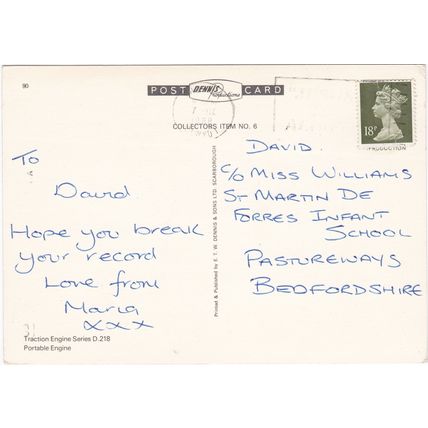 90
POST DENNIS Productions CARD
COLLECTORS ITEM NO. 6
18P
To
David
Hope you break
your record
Love from
Maria
xxx
Traction Engine Series D.218
Portable Engine
Printed & Published by E. T. W. DENNIS & SONS LTD. SCARBOROUGH
PRODUCTION
DAVID.
C/O MISS WILLIAMS
ST MARTIN DE
FORRES INFANT
SCHOOL
PASTUREWAYS
BEDFORDSHIRE